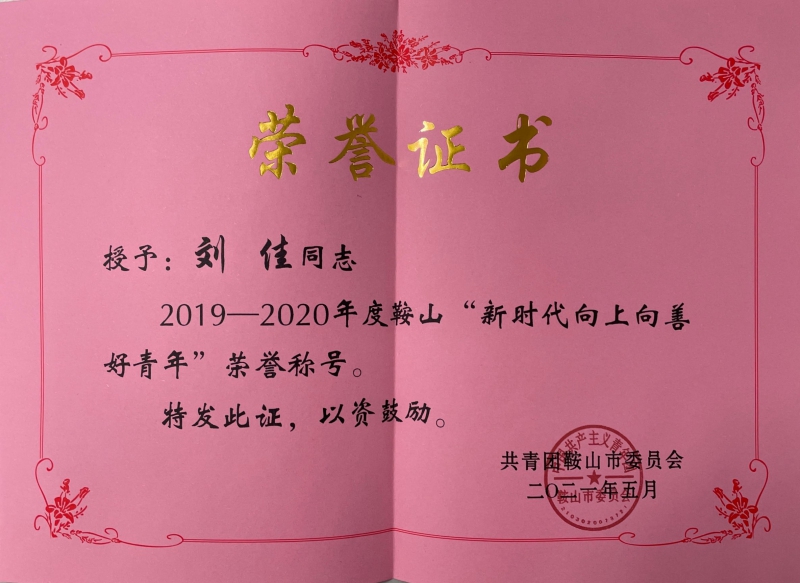 荣誉证书
授予：刘 佳同志
2019—2020年度鞍山“新时代向上向善
好青年”荣誉称号。
特发此证，以资鼓励。
共青团鞍山市委员会
二〇二一年五月
鞍山市委员会